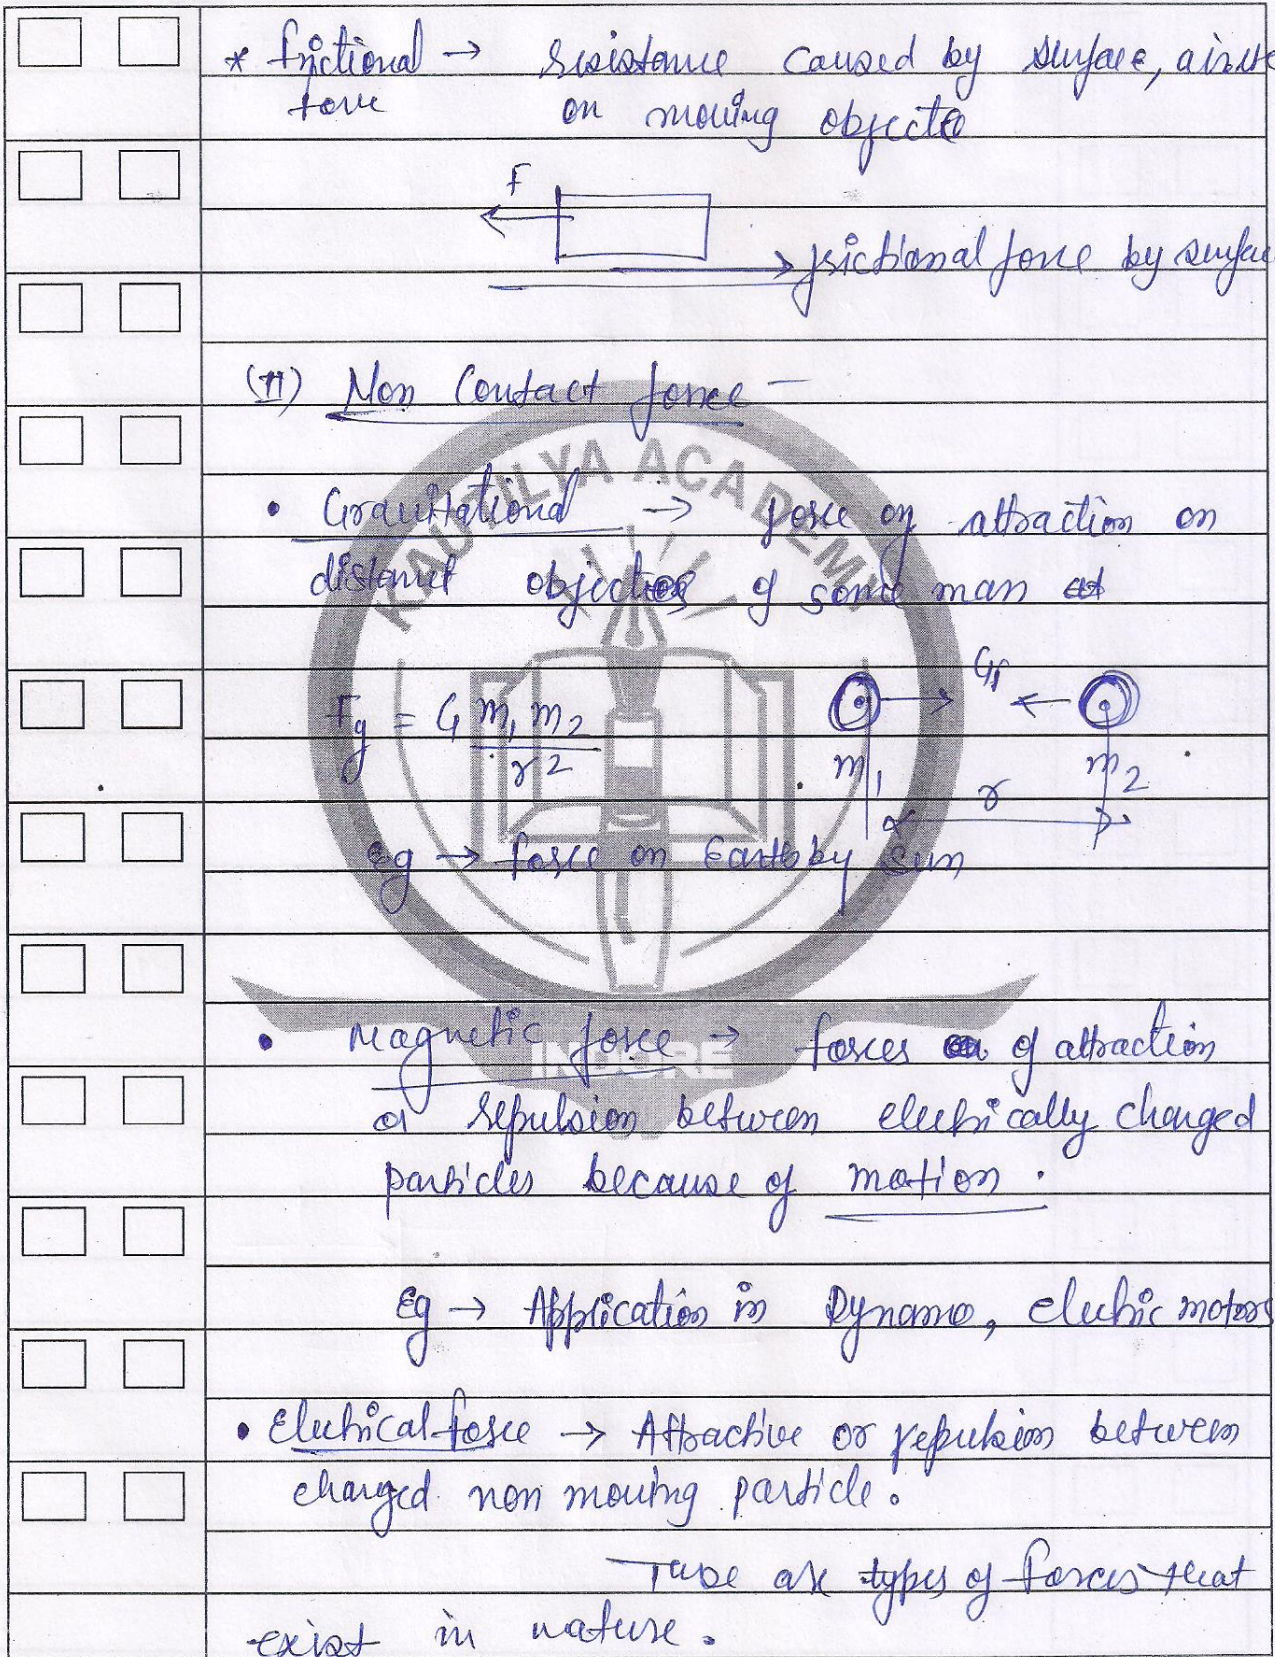 * frictional → resistance caused by surface, air etc
force on moving objects
F
frictional force by surface
(II) Non Contact force -
KAUTILYA ACADEMY
• Gravitational → force of attraction on
distant objects of some mass
Fg = G m1 m2 / r2
G
m1 m2
r
Eg → force on Earth by Sun
• Magnetic force → forces of attraction
INDORE
or repulsion between electrically charged
particles because of motion.
Eg → Application in Dynamo, electric motors
• Electrical force → Attractive or repulsion between
charged non moving particle.
These are types of forces that
exist in nature.